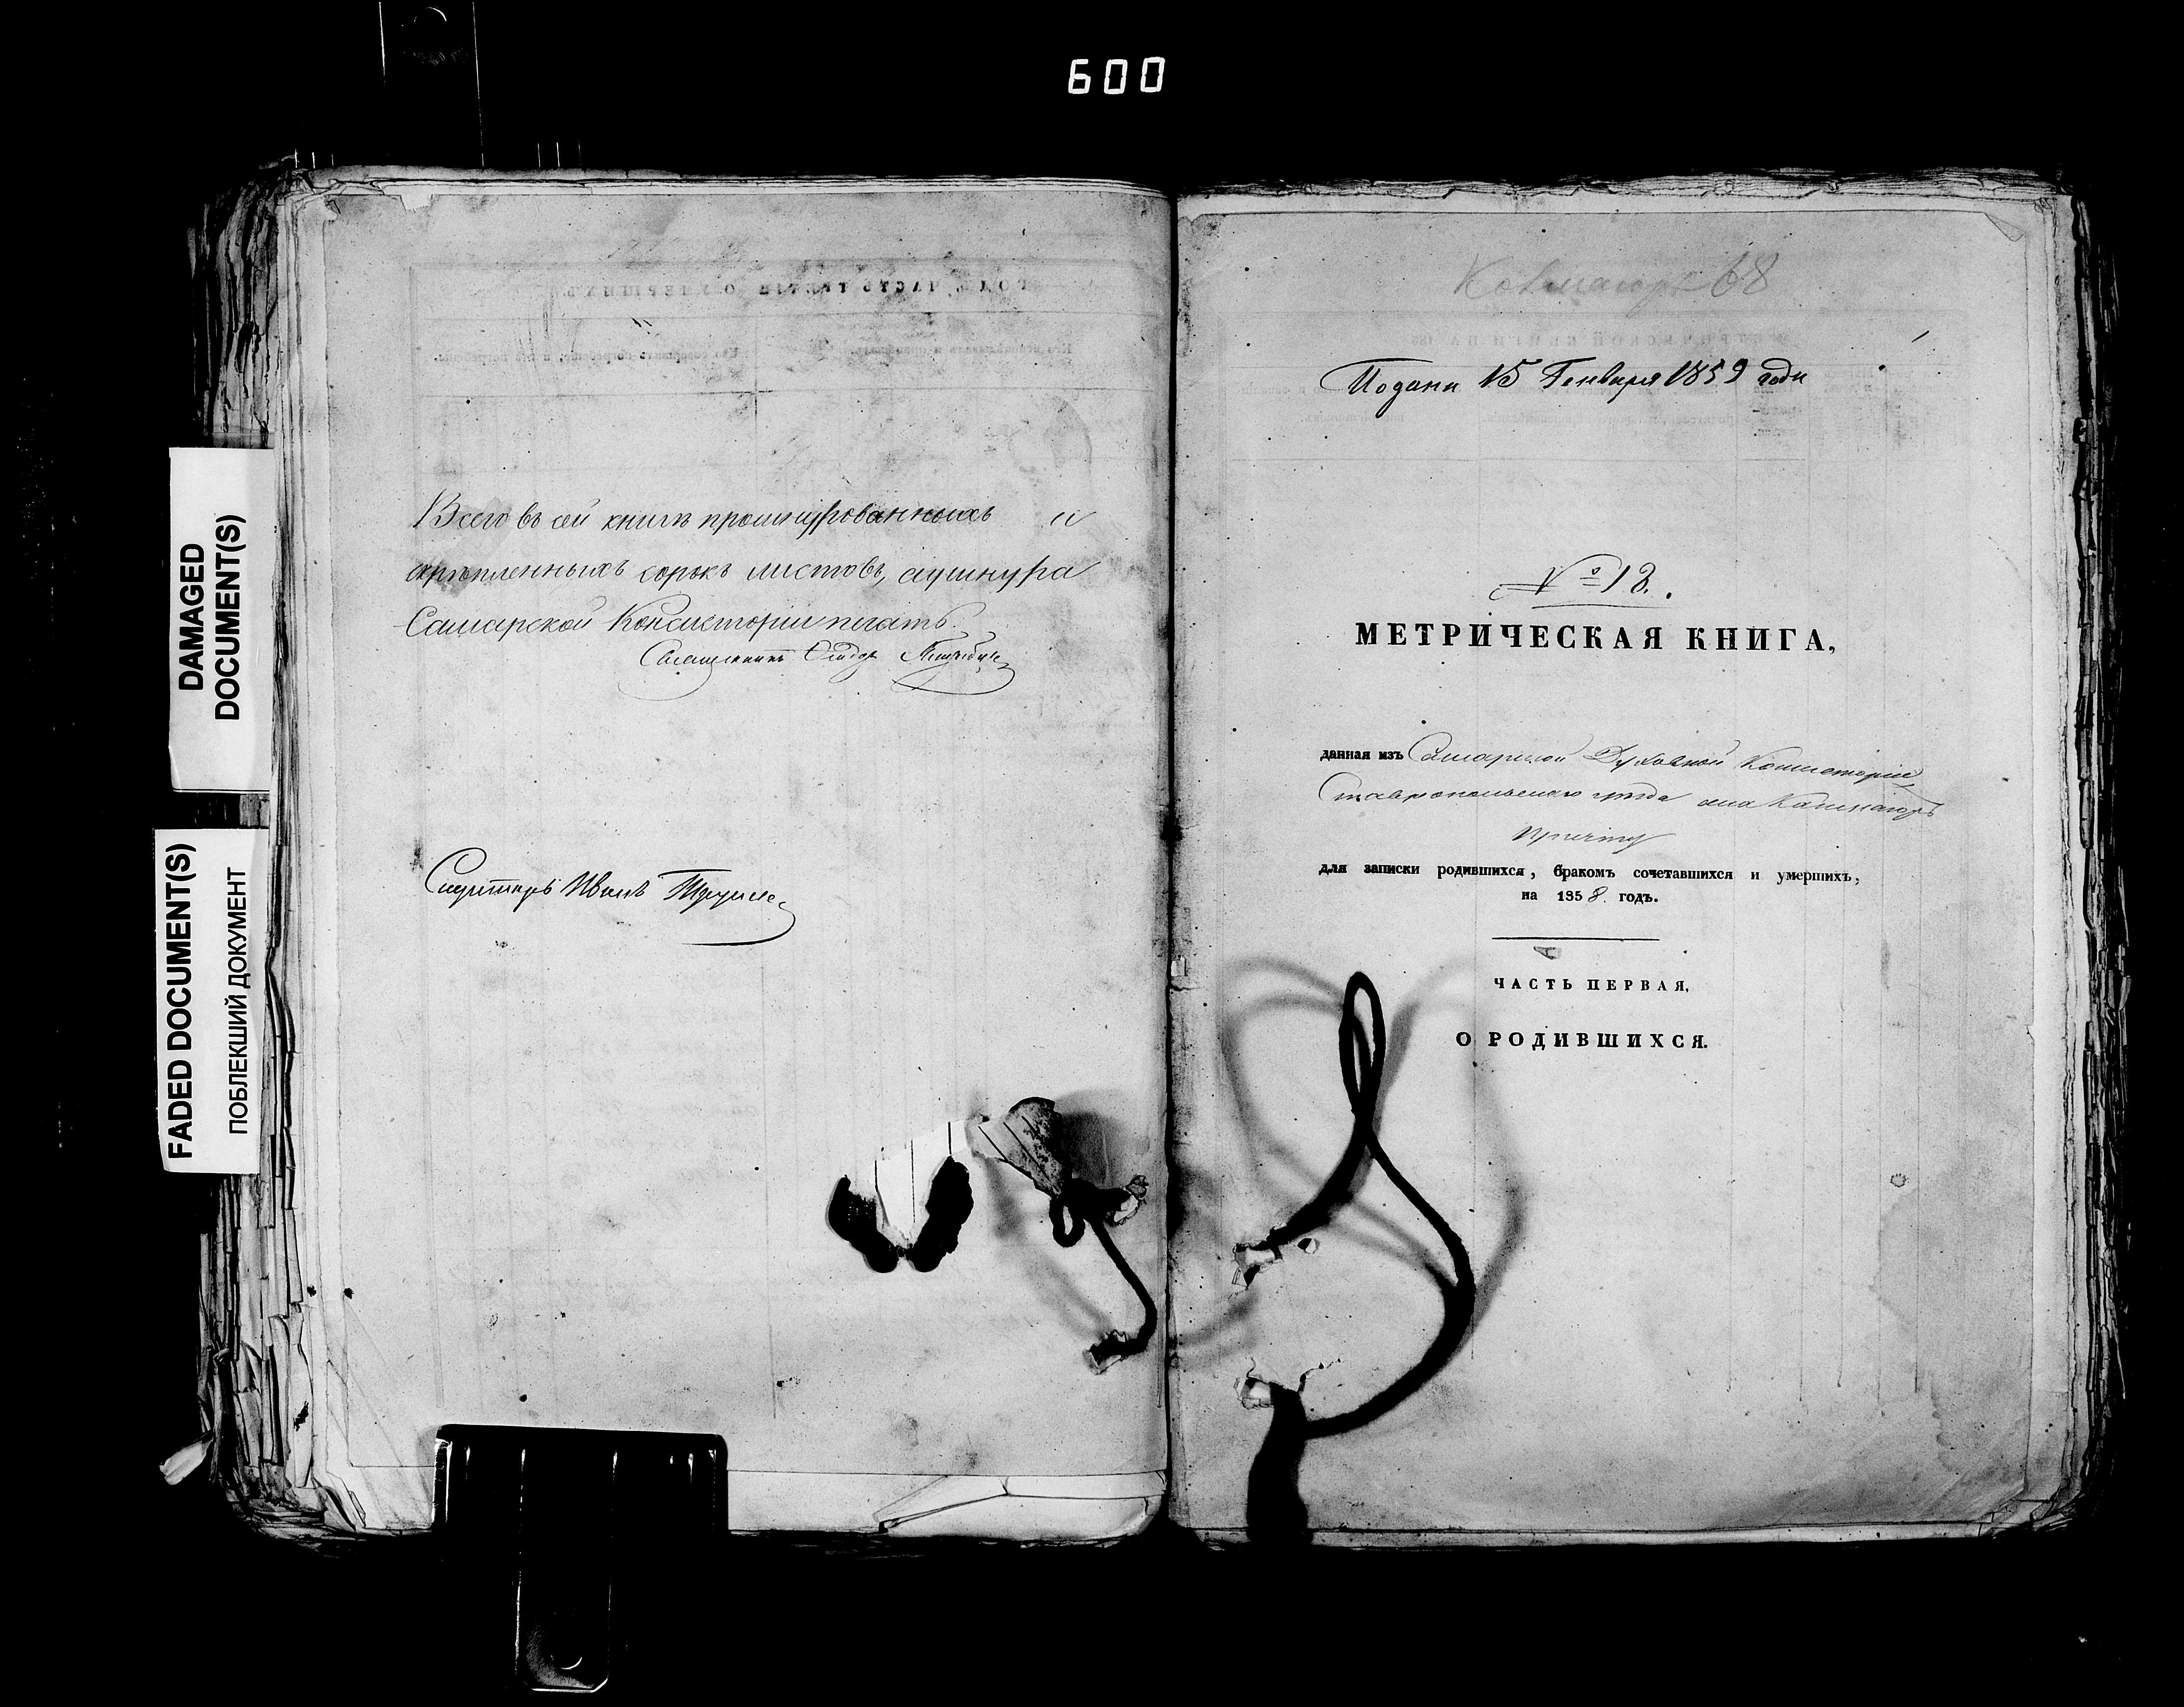 600
DAMAGED
DOCUMENT(S)
FADED DOCUMENT(S)
ПОБЛЕКШИЙ ДОКУМЕНТ
Всего въ сей книгѣ прошнурованныхъ и
скрѣпленныхъ сорокъ листовъ, а у шнура
Самарской Консисторіи печать.
Священникъ
Секретарь Иванъ
68
Подана 15 Генваря 1859 года
№ 18.
МЕТРИЧЕСКАЯ КНИГА,
данная изъ Самарской Духовной Консисторіи
Ставропольскаго уѣзда села
причту
для записки родившихся, бракомъ сочетавшихся и умершихъ,
на 1858. годъ.
ЧАСТЬ ПЕРВАЯ,
О РОДИВШИХСЯ.